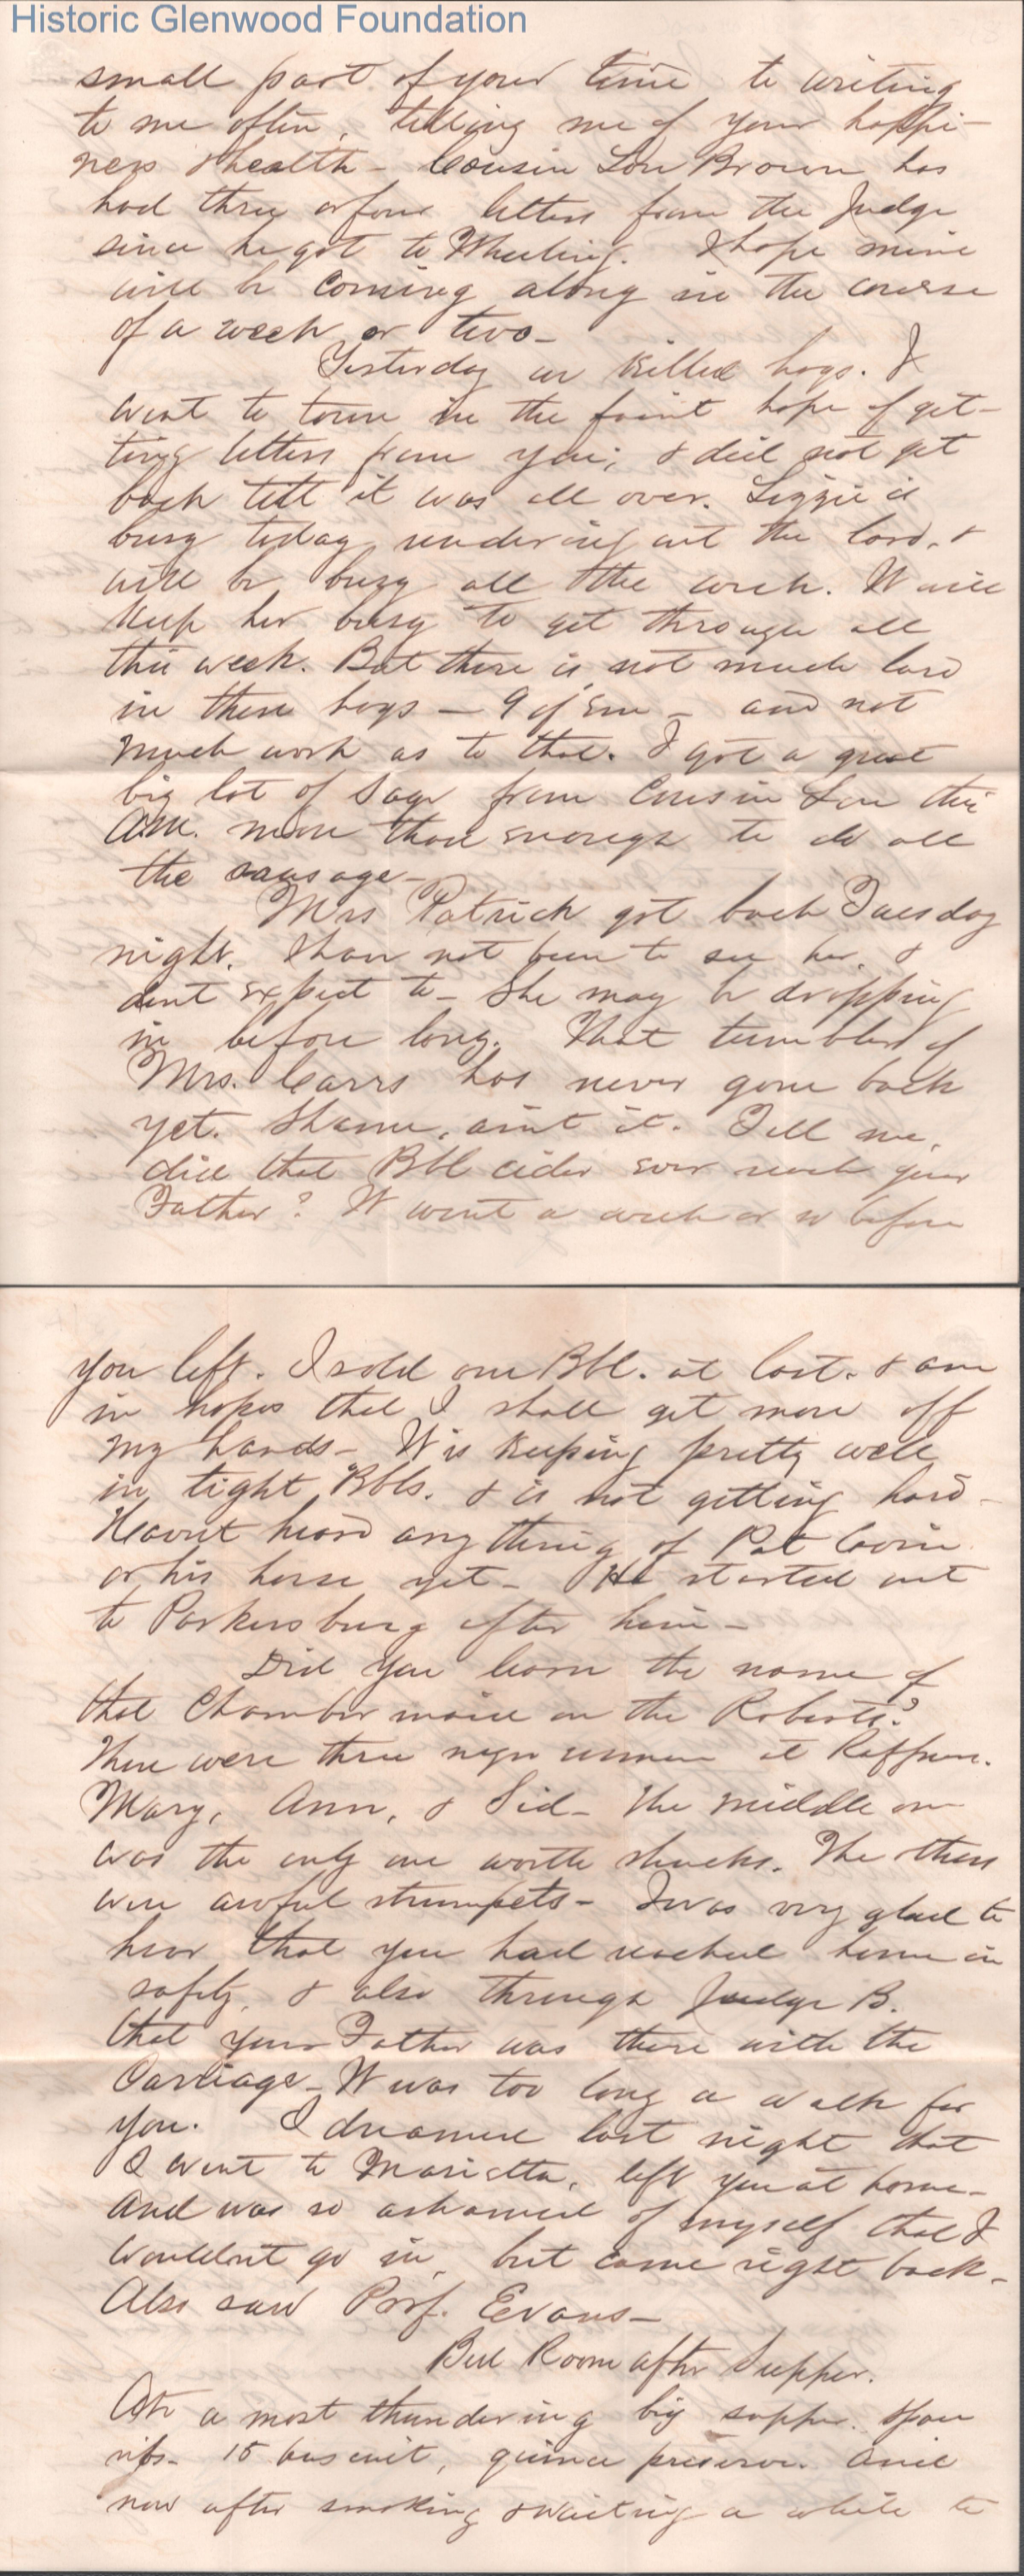 Historic Glenwood Foundation
small part of your time to writing
to me often, telling me of your happi-
ness & health - Cousin Lou Brown has
had three or four letters from the Judge
since he got to Wheeling. I hope mine
will be coming along in the course
of a week or two -
Yesterday we killed hogs. I
went to town in the faint hope of get-
ting letters from you; & did not get
back till it was all over. Lizzie is
busy today rendering out the lard, &
will be busy all the week. It will
keep her busy to get through all
this week. But there is not much lard
in these hogs - 9 of 'em - and not
much work as to that. I got a great
big lot of Sage from Cousin Lou this
A.M. more than enough to do all
the sausage -
Mrs Patrick got back Tuesday
night. I have not been to see her, &
dont expect to - She may be dropping
in before long. That tumbler of
Mrs. Carrs has never gone back
yet. Shame, aint it. Tell me,
did that Bbl cider ever reach your
Father? It went a week or so before
you left. I sold one Bbl. at last. & am
in hopes that I shall get more off
my hands - It is keeping pretty well
in tight Bbls. & is not getting hard -
Havent heard any thing of Pat
or his horse yet - He started out
to Parkersburg after him -
Did you learn the name of
that Chamber maid on the Roberts?
There were three negro women at
Mary, Ann, & Sid - The middle one
was the only one worth shucks. The others
were awful strumpets - I was very glad to
hear that you had reached home in
safety, & also through Judge B.
that your Father was there with the
Carriage - It was too long a walk for
you. I dreamed last night that
I went to Marietta, left you at home -
and was so ashamed of myself that I
wouldnt go in, but came right back -
Also saw Prof. Evans -
Bed Room after Supper.
Ate a most thundering big supper. Spare
ribs - 15 buscuit, quince preserves. And
now after smoking & waiting a while to